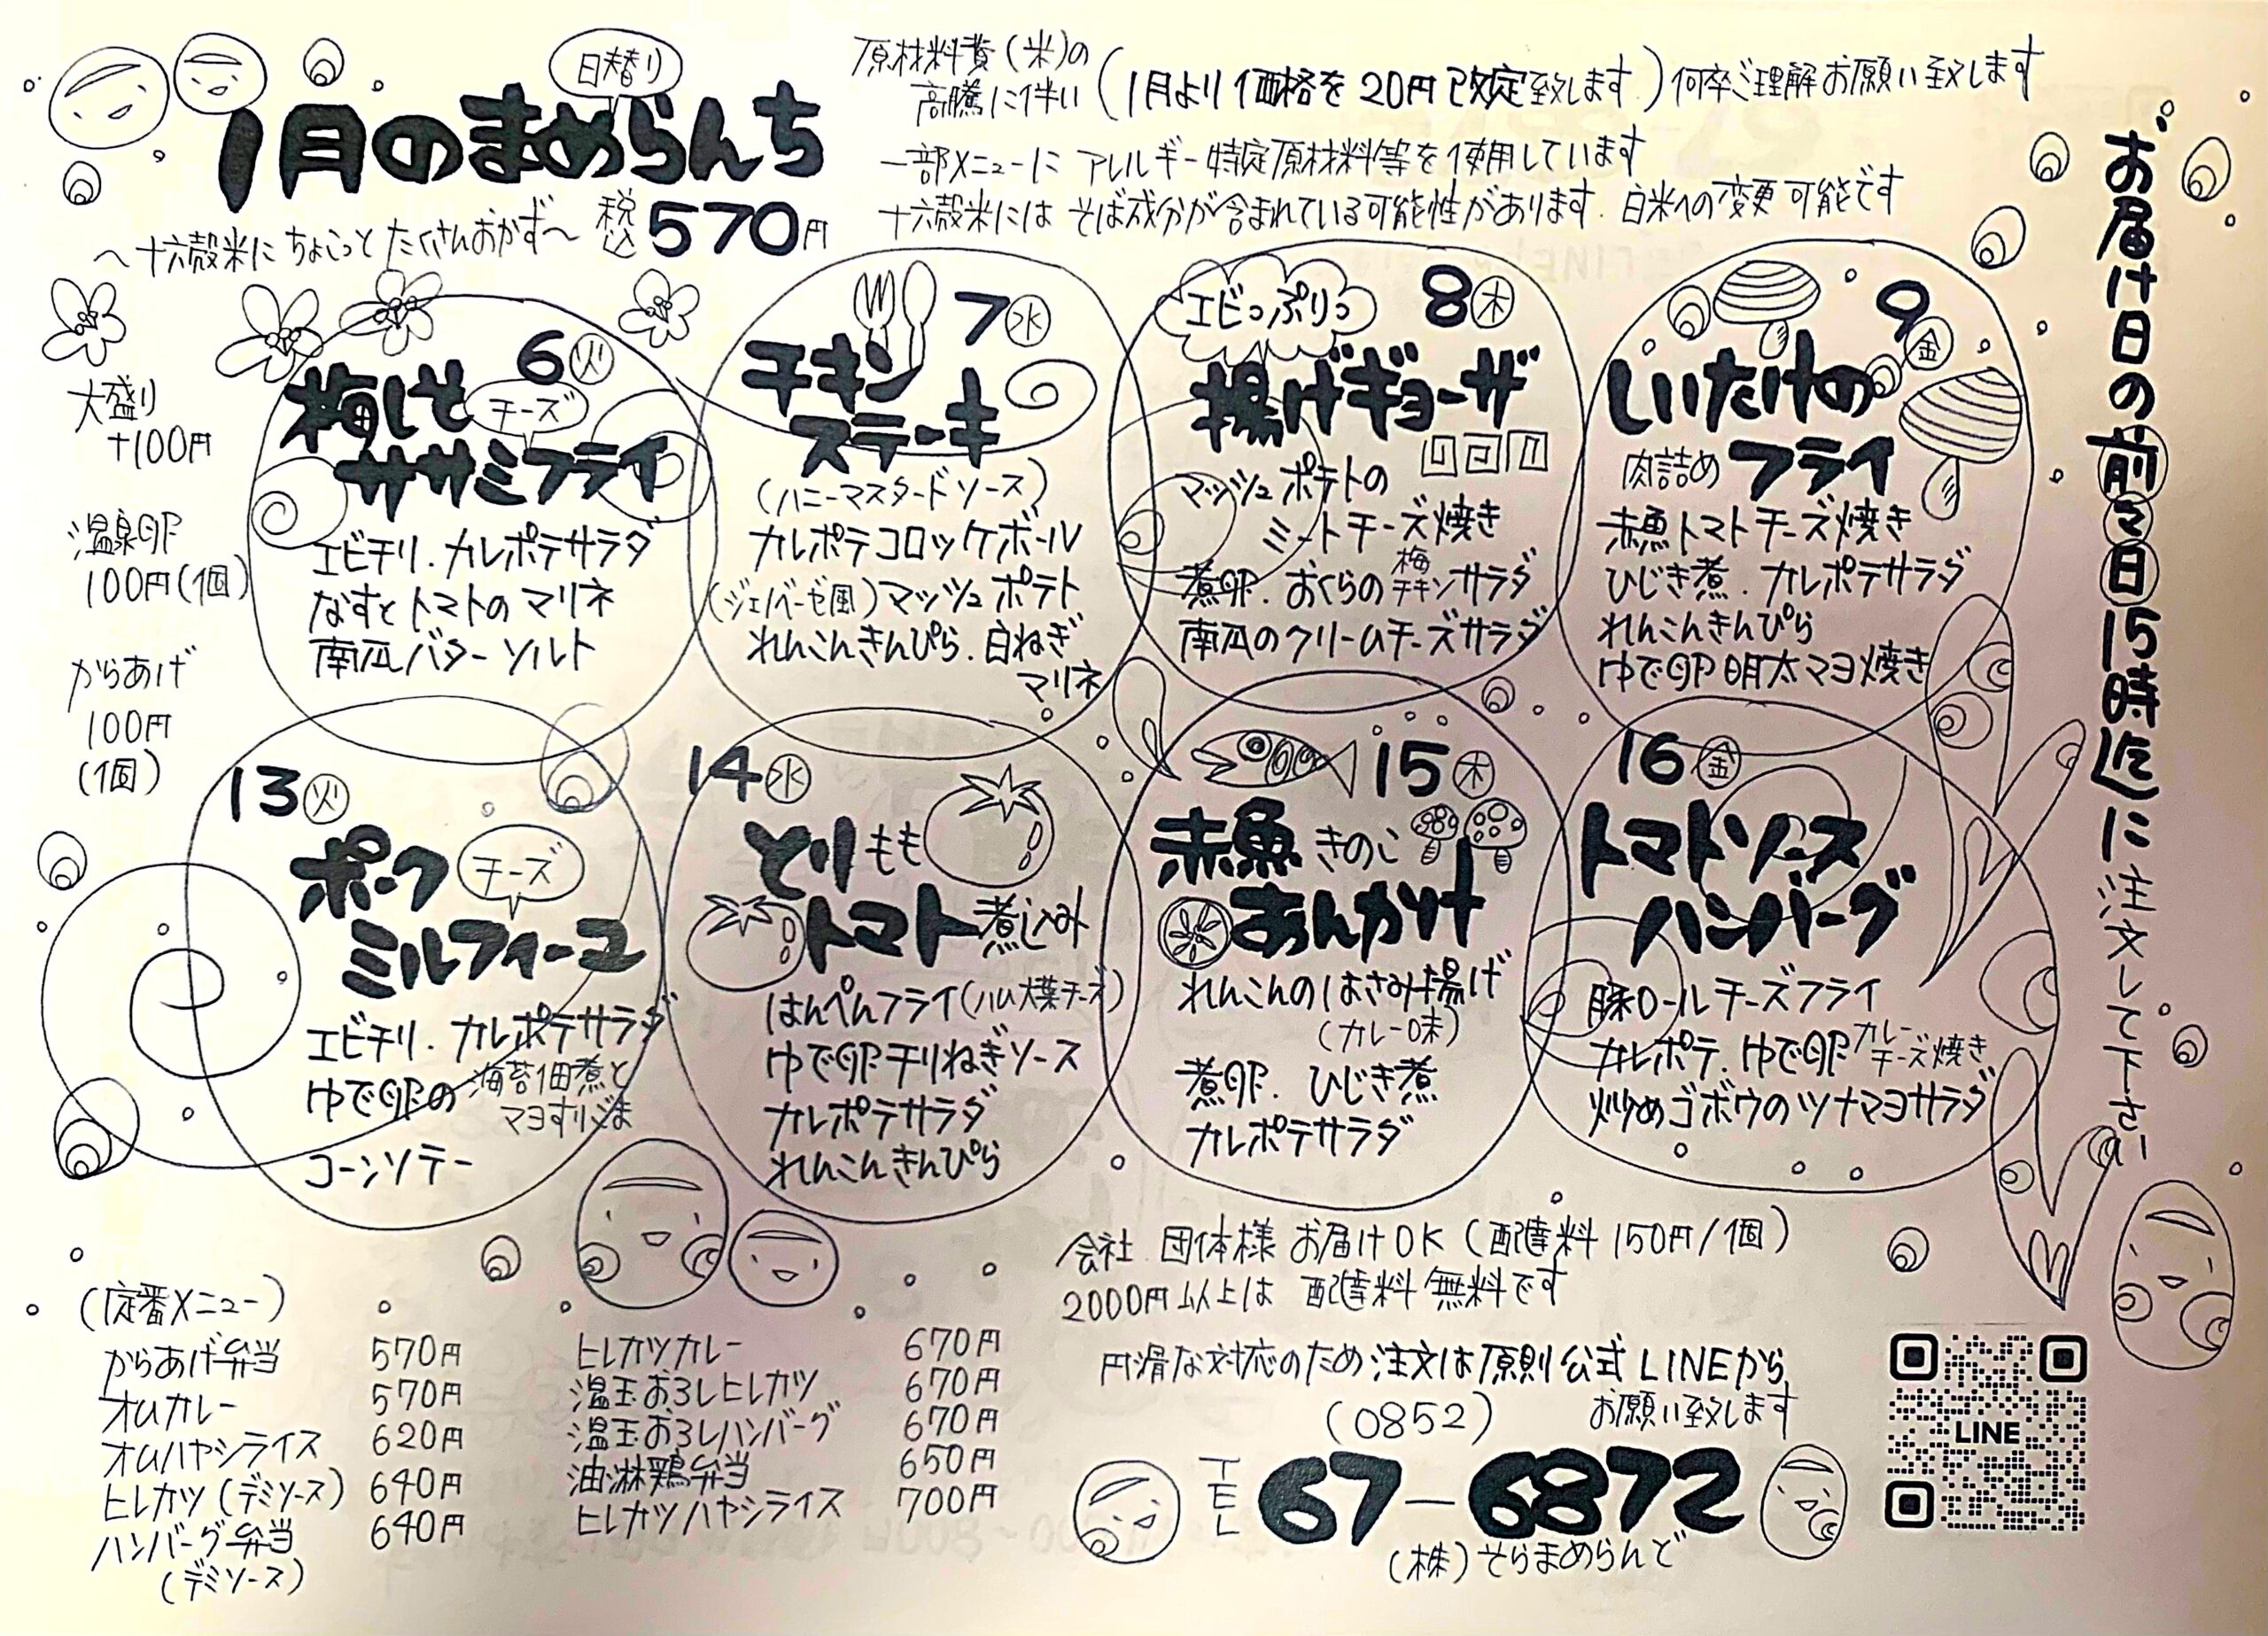 日替り
1月のまめらんち
〜十六穀米にちょこっとたくさんおかず〜 税込570円
原材料費(米)の
高騰に伴い(1月より価格を20円改定致します)何卒ご理解お願い致します
一部メニューにアレルギー特定原材料等を使用しています
十六穀米にはそば成分が含まれている可能性があります.白米への変更可能です
お届け日の前日15時迄に注文して下さい
大盛り
+100円
温泉卵
100円(1個)
からあげ
100円
(1個)
6火
梅しそ チーズ
ササミフライ
エビチリ.カレポテサラダ
なすとトマトのマリネ
南瓜バターソルト
7水
チキン
ステーキ
(ハニーマスタードソース)
カレポテコロッケボール
(ジェノベーゼ風)マッシュポテト
れんこんきんぴら.白ねぎ
マリネ
エビっぷりっ 8木
揚げギョーザ
マッシュポテトの
ミートチーズ焼き
煮卵.おくらの梅チキンサラダ
南瓜のクリームチーズサラダ
9金
しいたけの
肉詰めフライ
赤魚トマトチーズ焼き
ひじき煮.カレポテサラダ
れんこんきんぴら
ゆで卵明太マヨ焼き
13火
ポーク チーズ
ミルフィーユ
エビチリ.カレポテサラダ
ゆで卵の海苔佃煮と
マヨすりごま
コーンソテー
14水
とりもも
トマト煮込み
はんぺんフライ(ハム大葉チーズ)
ゆで卵チリねぎソース
カレポテサラダ
れんこんきんぴら
15木
赤魚きのこ
あんかけ
れんこんのはさみ揚げ
(カレー味)
煮卵.ひじき煮
カレポテサラダ
16金
トマトソース
ハンバーグ
豚ロールチーズフライ
カレポテ.ゆで卵カレーチーズ焼き
炒めゴボウのツナマヨサラダ
(定番メニュー)
からあげ弁当 570円
オムカレー 570円
オムハヤシライス 620円
ヒレカツ(デミソース) 640円
ハンバーグ弁当 640円
(デミソース)
ヒレカツカレー 670円
温玉おろしヒレカツ 670円
温玉おろしハンバーグ 670円
油淋鶏弁当 650円
ヒレカツハヤシライス 700円
会社.団体様お届けOK(配達料150円/1個)
2000円以上は配達料無料です
円滑な対応のため注文は原則公式LINEから
お願い致します
(0852)
TEL 67-6872
(株)そらまめらんど
LINE